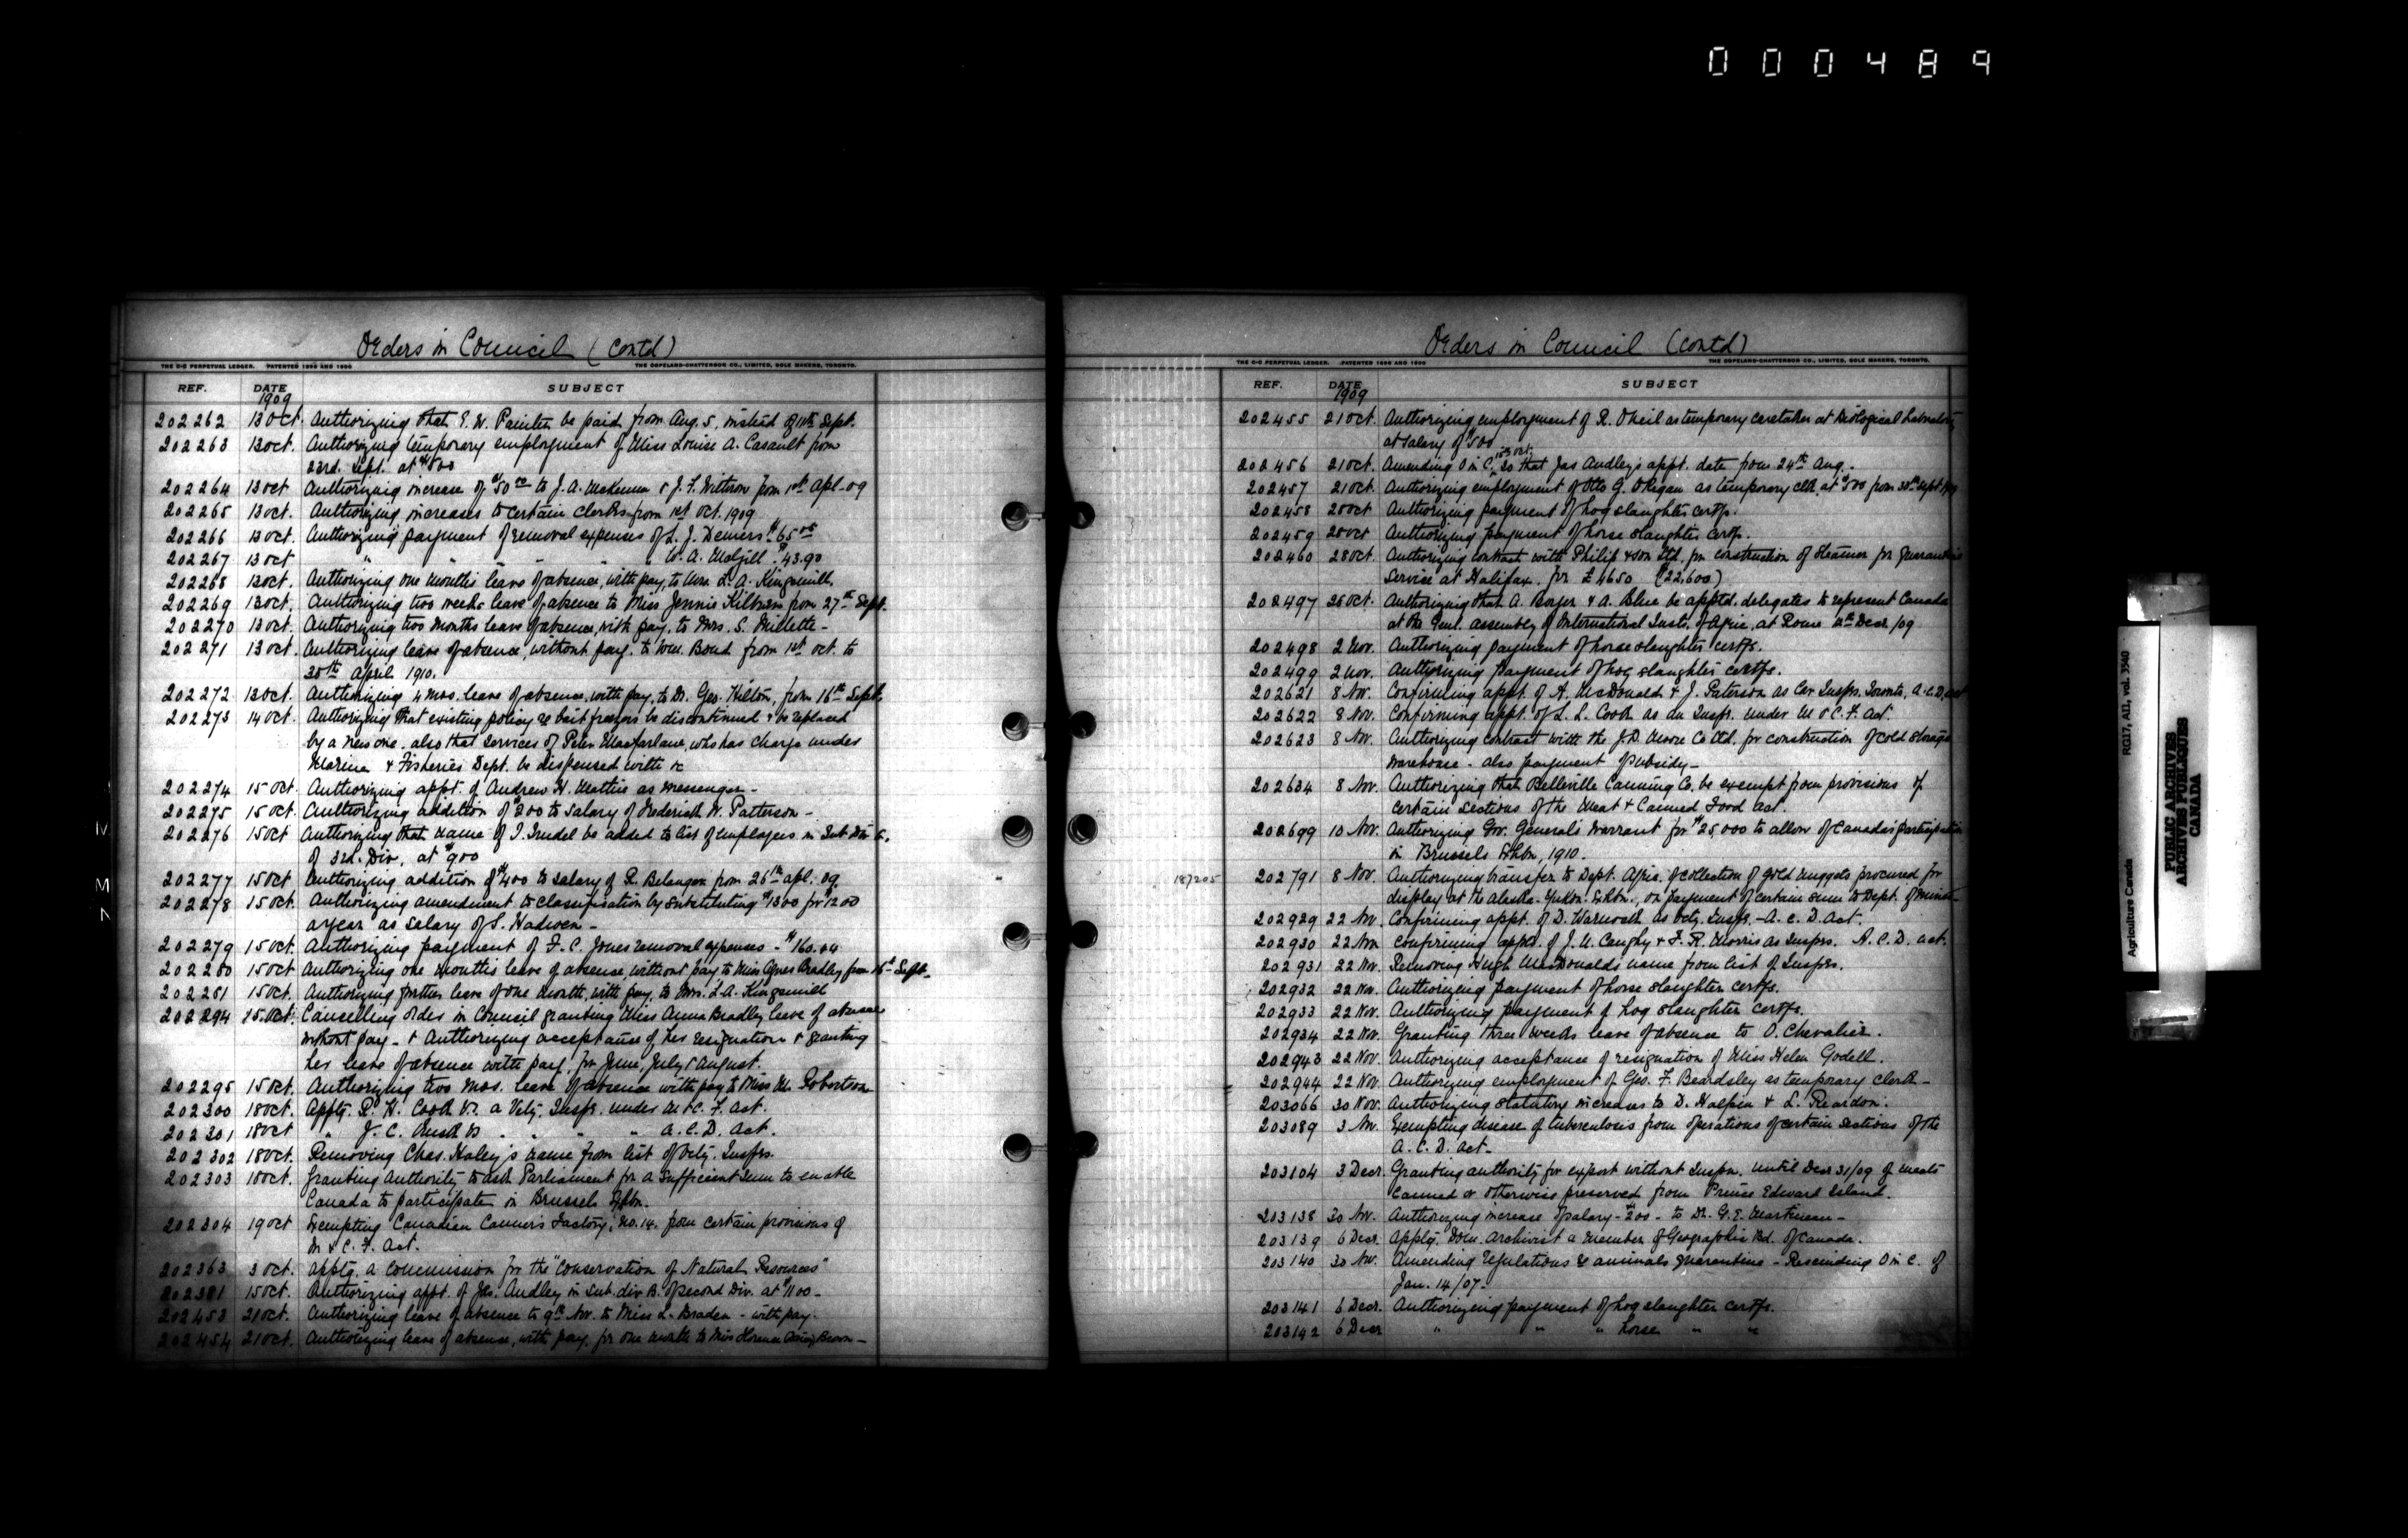 000489
Orders in Council (Contd)
THE C-C PERPETUAL LEDGER. PATENTED 1896 AND 1906 THE COPELAND-CHATTERSON CO., LIMITED, SOLE MAKERS, TORONTO.
REF. DATE SUBJECT
1909
202262 13 Oct. Authorizing that E. W. Painter be paid from Aug. 5, instead of 11th Sept.
202263 13 Oct. Authorizing temporary employment of Miss Louise A. Casault from
23rd. Sept. at $500
202264 13 Oct Authorizing increase of $50.00 to J. A. McKenna & J. F. Watson from 1st Apl-09
202265 13 Oct. Authorizing increases to certain clerks from 1st Oct. 1909
202266 13 Oct. Authorizing payment of removal expenses of L. J. Demers $65.00
202267 13 Oct " " " " W. A. McGill $43.90
202268 13 Oct. Authorizing one months leave of absence, with pay, to Mrs. L. A. Kingsmill.
202269 13 Oct. Authorizing two weeks leave of absence to Miss Jennie Kilburn from 27th Sept.
202270 13 Oct. Authorizing two months leave of absence, with pay, to Mrs. S. Millette -
202271 13 Oct. Authorizing leave of absence, without pay, to Wm. Bond from 1st Oct. to
30th April 1910.
202272 13 Oct. Authorizing 4 mos. leave of absence, with pay, to Dr. Geo. Hilton, from 16th Sept.
202273 14 Oct. Authorizing that existing policy re bait freezers be discontinued & be replaced
by a new one - also that services of Peter Macfarlane, who has charge under
Marine & Fisheries Dept. be dispensed with &c
202274 15 Oct. Authorizing appt. of Andrew H. Mattice as messenger -
202275 15 Oct. Authorizing addition of $200 to salary of Frederick W. Patterson -
202276 15 Oct Authorizing that name of J. Trudel be added to list of employees in Sub Div B.
of 3rd. Div, at $900
202277 15 Oct Authorizing addition of $400 to salary of R. Belanger from 26th apl. 09.
202278 15 Oct. Authorizing amendment to classification by substituting $1300 for 1200
a year as salary of S. Hadwen -
202279 15 Oct. Authorizing payment of F. C. Jones removal expenses - $160.44
202280 15 Oct Authorizing one months leave of absence, without pay to Miss Agnes Bradley from 16th Sept.
202281 15 Oct. Authorizing further leave of one month, with pay, to Mrs. L. A. Kingsmill
202294 15. Oct. Cancelling order in Council granting Miss Anna Bradley leave of absence
without pay - & Authorizing acceptance of her resignation & granting
her leave of absence with pay, for June, July & August.
202295 15 Oct. Authorizing two mos. leave of absence with pay to Miss M. Robertson
202300 18 Oct. Apptg. R. H. Cook V.S. a Vety. Inspr. under M & C. F. Act.
202301 18 Oct " J. C. V.S. " " " A. C. D. Act.
202302 18 Oct. Removing Chas. Haley's name from list of Vety. Insprs.
202303 18 Oct. Granting Authority to ask Parliament for a sufficient sum to enable
Canada to participate in Brussels Exhbn.
202304 19 Oct Exempting Canadian Canners Factory, No. 14. from certain provisions of
M & C. F. Act.
202363 3 Oct. Apptg. a Commission for the "Conservation of Natural Resources"
202381 15 Oct. Authorizing appt. of Jas. Audley in Sub. div B. of second Div. at $1100 -
202453 21 Oct. Authorizing leave of absence to 9th Nov. to Miss L. Braden - with pay.
202454 21 Oct. Authorizing leave of absence, with pay, for one month to Miss Florence Brown -
Orders in Council (contd)
THE C-C PERPETUAL LEDGER. PATENTED 1896 AND 1906 THE COPELAND-CHATTERSON CO., LIMITED, SOLE MAKERS, TORONTO.
REF. DATE SUBJECT
1909
202455 21 Oct. Authorizing employment of R. O'Neil as temporary caretaker at Biological Laboratory
at salary of $500
202456 21 Oct. Amending O in C. 15th Oct. so that Jas Audley's appt. date from 24th Aug.
202457 21 Oct. Authorizing employment of Otto G. O'Regan as temporary clk. at $500 from 30th Sept 1909
202458 28 Oct Authorizing payment of hog slaughter certfs.
202459 28 Oct Authorizing payment of horse slaughter certfs.
202460 28 Oct. Authorizing contract with Philip & Son Ltd. for construction of steamer for quarantine
service at Halifax. for £4650 ($22,600)
202497 26 Oct. Authorizing that A. Boyer & A. Blue be apptd. delegates to represent Canada
at the Genl. assembly of International Inst. of Agric, at Rome Decr. /09
202498 2 Nov. Authorizing payment of horse slaughter certfs.
202499 2 Nov. Authorizing payment of hog slaughter certfs.
202621 8 Nov. Confirming appt. of A. McDonald & J. Paterson as Car Insprs. Toronto, A.C.D. Act
202622 8 Nov. Confirming appt. of L. L. Cook as an Inspr. under M & C. F. Act.
202623 8 Nov. Authorizing contract with the J. D. Moore Co Ltd. for construction of cold storage
warehouse - also payment of subsidy -
202634 8 Nov. Authorizing that Belleville Canning Co. be exempt from provisions of
certain sections of the Meat & Canned Food Act.
202699 10 Nov. Authorizing Gov. General's warrant for $25,000 to allow of Canada's participation
in Brussels Exhbn, 1910.
187205 202791 8 Nov. Authorizing transfer to Dept. Agric. of collection of gold nuggets procured for
display at the Alaska-Yukon-Exhbn., on payment of certain sum to Dept. of Mines -
202929 22 Nov. Confirming appt. of D. Warnock as Vety. Inspr. - A. C. D. Act.
202930 22 Nov Confirming appt. of J. U. Caughy & F. R. Morris as Insprs. A. C. D. Act.
202931 22 Nov. Removing Hugh McDonalds name from list of Insprs.
202932 22 Nov. Authorizing payment of horse slaughter certfs.
202933 22 Nov. Authorizing payment of hog slaughter certfs.
202934 22 Nov. Granting three weeks leave of absence to O. Chevalier.
202943 22 Nov. Authorizing acceptance of resignation of Miss Helen Godell.
202944 22 Nov. Authorizing employment of Geo. F. Beardsley as temporary clerk -
203066 30 Nov. Authorizing statutory increases to D. Halpin & L. Reardon.
203089 3 Nov. Exempting disease of tuberculosis from operations of certain sections of the
A. C. D. Act -
203104 3 Decr. Granting authority for export without Inspn. until Decr 31/09 of meats
canned or otherwise preserved from Prince Edward Island.
203138 30 Nov. Authorizing increase of salary - $200 - to Dr. G. E. Martineau -
203139 6 Decr. Apptg. Dom. Archivist a member of Geographic Bd. of Canada.
203140 30 Nov. Amending regulations re animals quarantine - Rescinding O in C. of
Jan. 14/07 -
203141 6 Decr. Authorizing payment of hog slaughter certfs.
203142 6 Decr " " " horse " "
Agriculture Canada RG17, AII, vol. 3540
PUBLIC ARCHIVES
ARCHIVES PUBLIQUES
CANADA